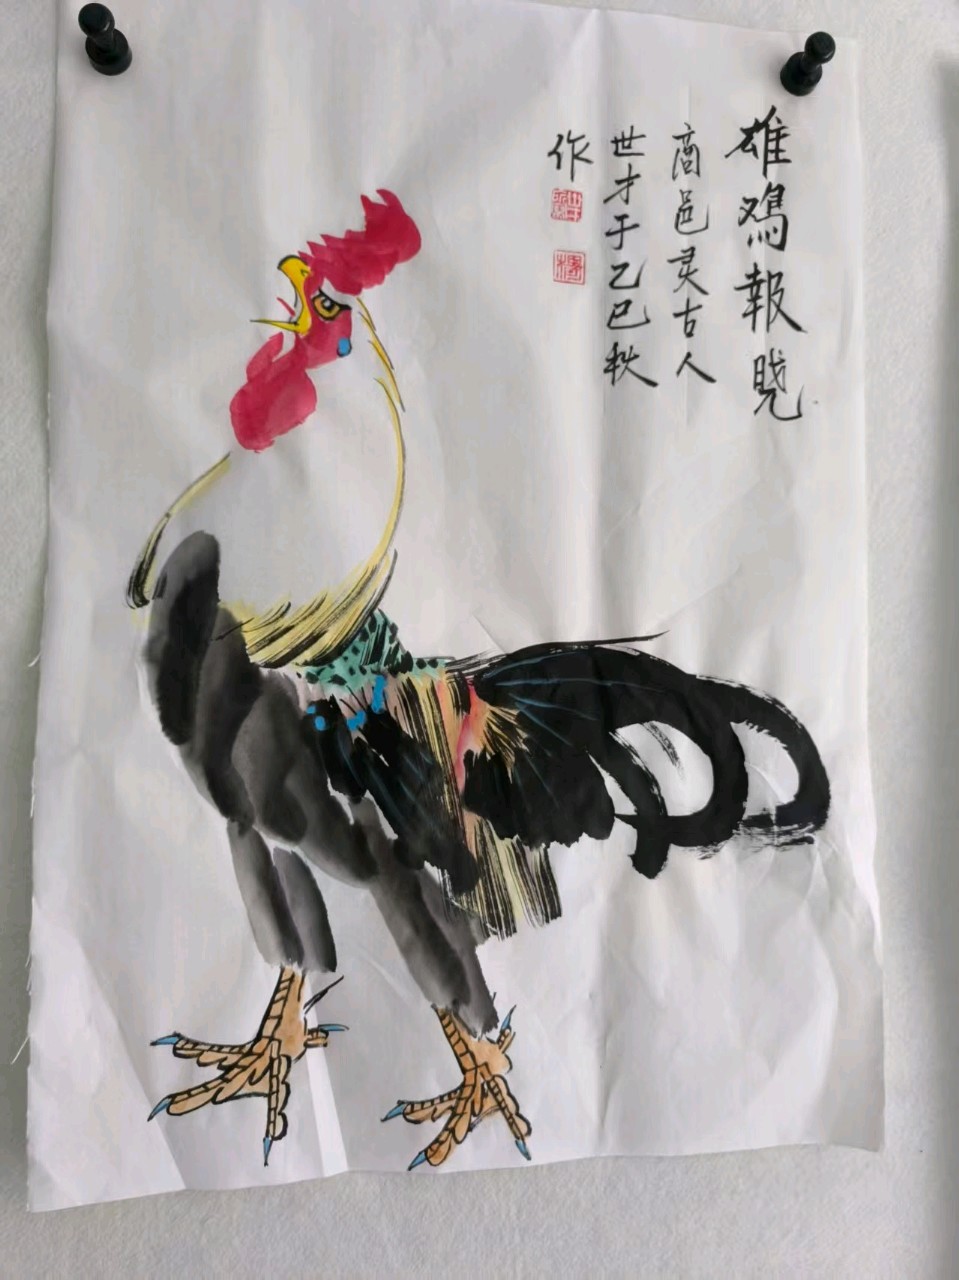 雄鸡報晓
商邑灵古人
世才于乙巳秋
作